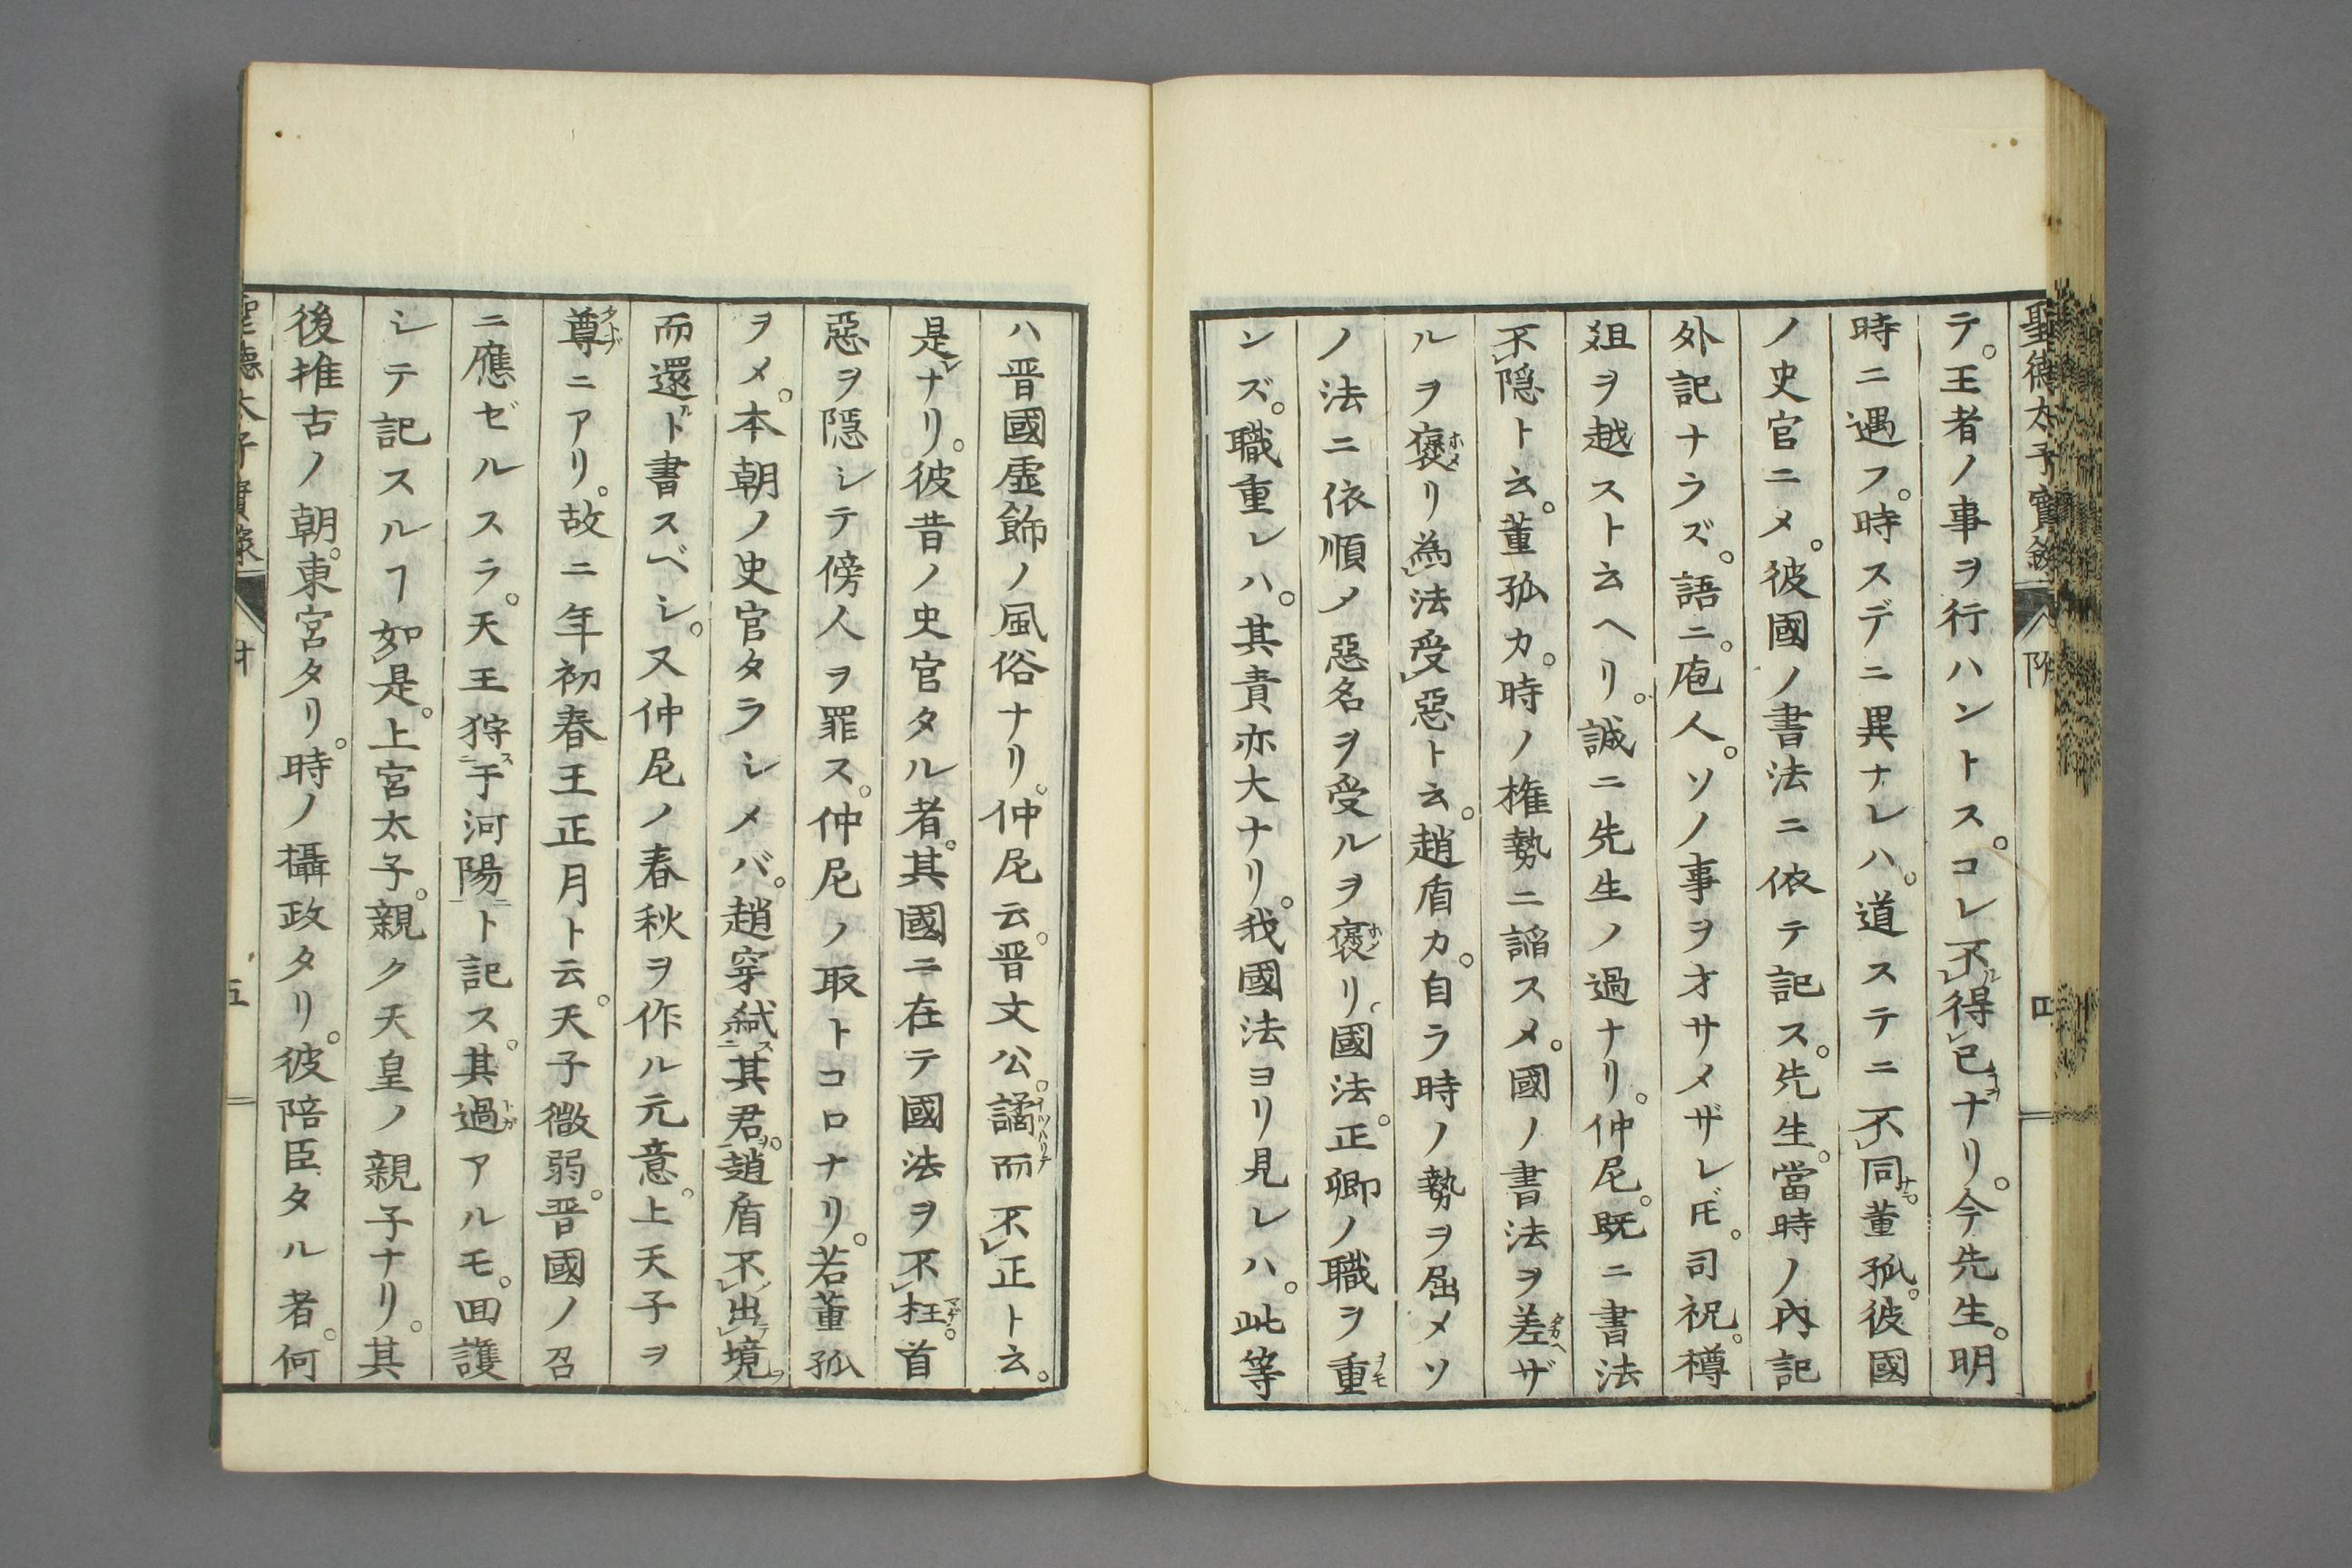 聖德太子實錄 附 四
テ。王者ノ事ヲ行ハントス。コレ不レ得ルレ已コヲナリ。今先生。明
時ニ遇フ。時スデニ異ナレハ。道ステニ不レ同カラ。董孤。彼國
ノ史官ニメ。彼國ノ書法ニ依テ記ス。先生。當時ノ內記
外記ナラズ。語ニ。庖人。ソノ事ヲオサメザレ𪜈。司祝。樽
俎ヲ越ストㄊヘリ。誠ニ先生ノ過ナリ。仲尼。既ニ書法
不レ隠ト云。董孤カ。時ノ権勢ニ謟スメ。國ノ書法ヲ差タガヘザ
ルヲ褒ホメリ為レ法受レ惡ト云。趙盾カ。自ラ時ノ勢ヲ屈メソ
ノ法ニ依順メ惡名ヲ受ルヲ褒ホメリ。國法。正卿ノ職ヲ重オモ
ンズ。職重レハ。其責亦大ナリ。我國法ヨリ見レハ。此等
ハ晋國虛飾ノ風俗ナリ。仲尼云。晋文公。譎イツハリテ而不レ正ト云。
是レナリ。彼昔ノ史官タル者。其國ニ在テ國法ヲ不レ枉マゲ。首
惡ヲ隱シテ傍人ヲ罪ス。仲尼ノ取トコロナリ。若董孤
ヲメ。本朝ノ史官タラシメバ。趙穿弑ス二其君ヲ。趙盾不レ出テレ境ヲ
而還ルト書スベシ。又仲尼ノ春秋ヲ作ル元意。上天子ヲ
尊タトブニアリ。故ニ年初春王正月ト云。天子微弱。晋國ノ召
ニ應ゼルスラ。天王狩ス二于河陽一ニト記ス。其過トガアルモ。囬護
シテ記スルヿ如レ是。上宮太子。親ク天皇ノ親子ナリ。其
後推古ノ朝。東宮タリ。時ノ攝政タリ。彼陪臣タル者。何
聖德太子實錄 附 五